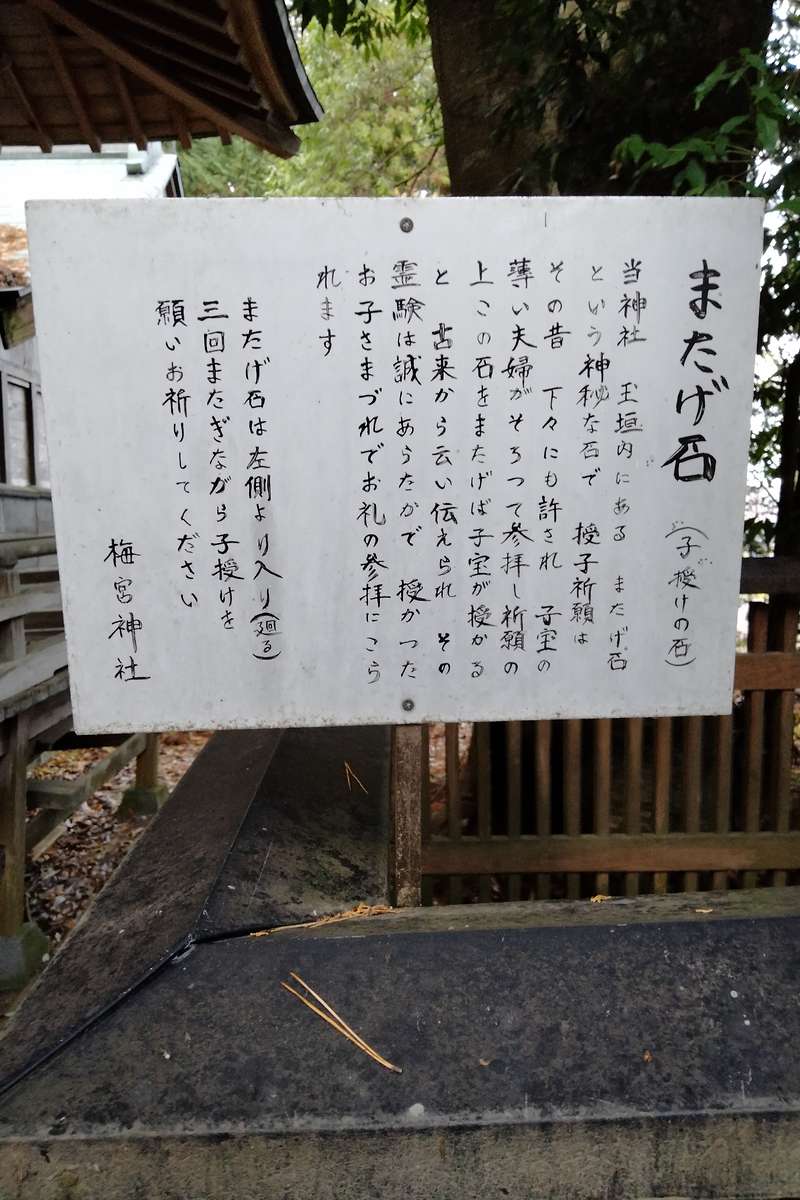 またげ石 (子授けの石)
当神社 玉垣内にある またげ石
という神秘な石で 授子祈願は
その昔 下々にも許され 子宝の
薄い夫婦がそろって参拝し祈願の
上この石をまたげば子宝が授かる
と 古来から云い伝えられ その
霊験は誠にあらたかで 授かった
お子さまづれでお礼の参拝にこら
れます
またげ石は左側より入り(廻る)
三回またぎながら子授けを
願いお祈りしてください
梅宮神社